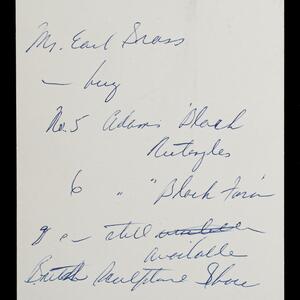 Mr. Earl Grass
— buy
No. 5 Adams "Black
Rectangles
6 " "Black Form
still available
available
British Sculpture Show